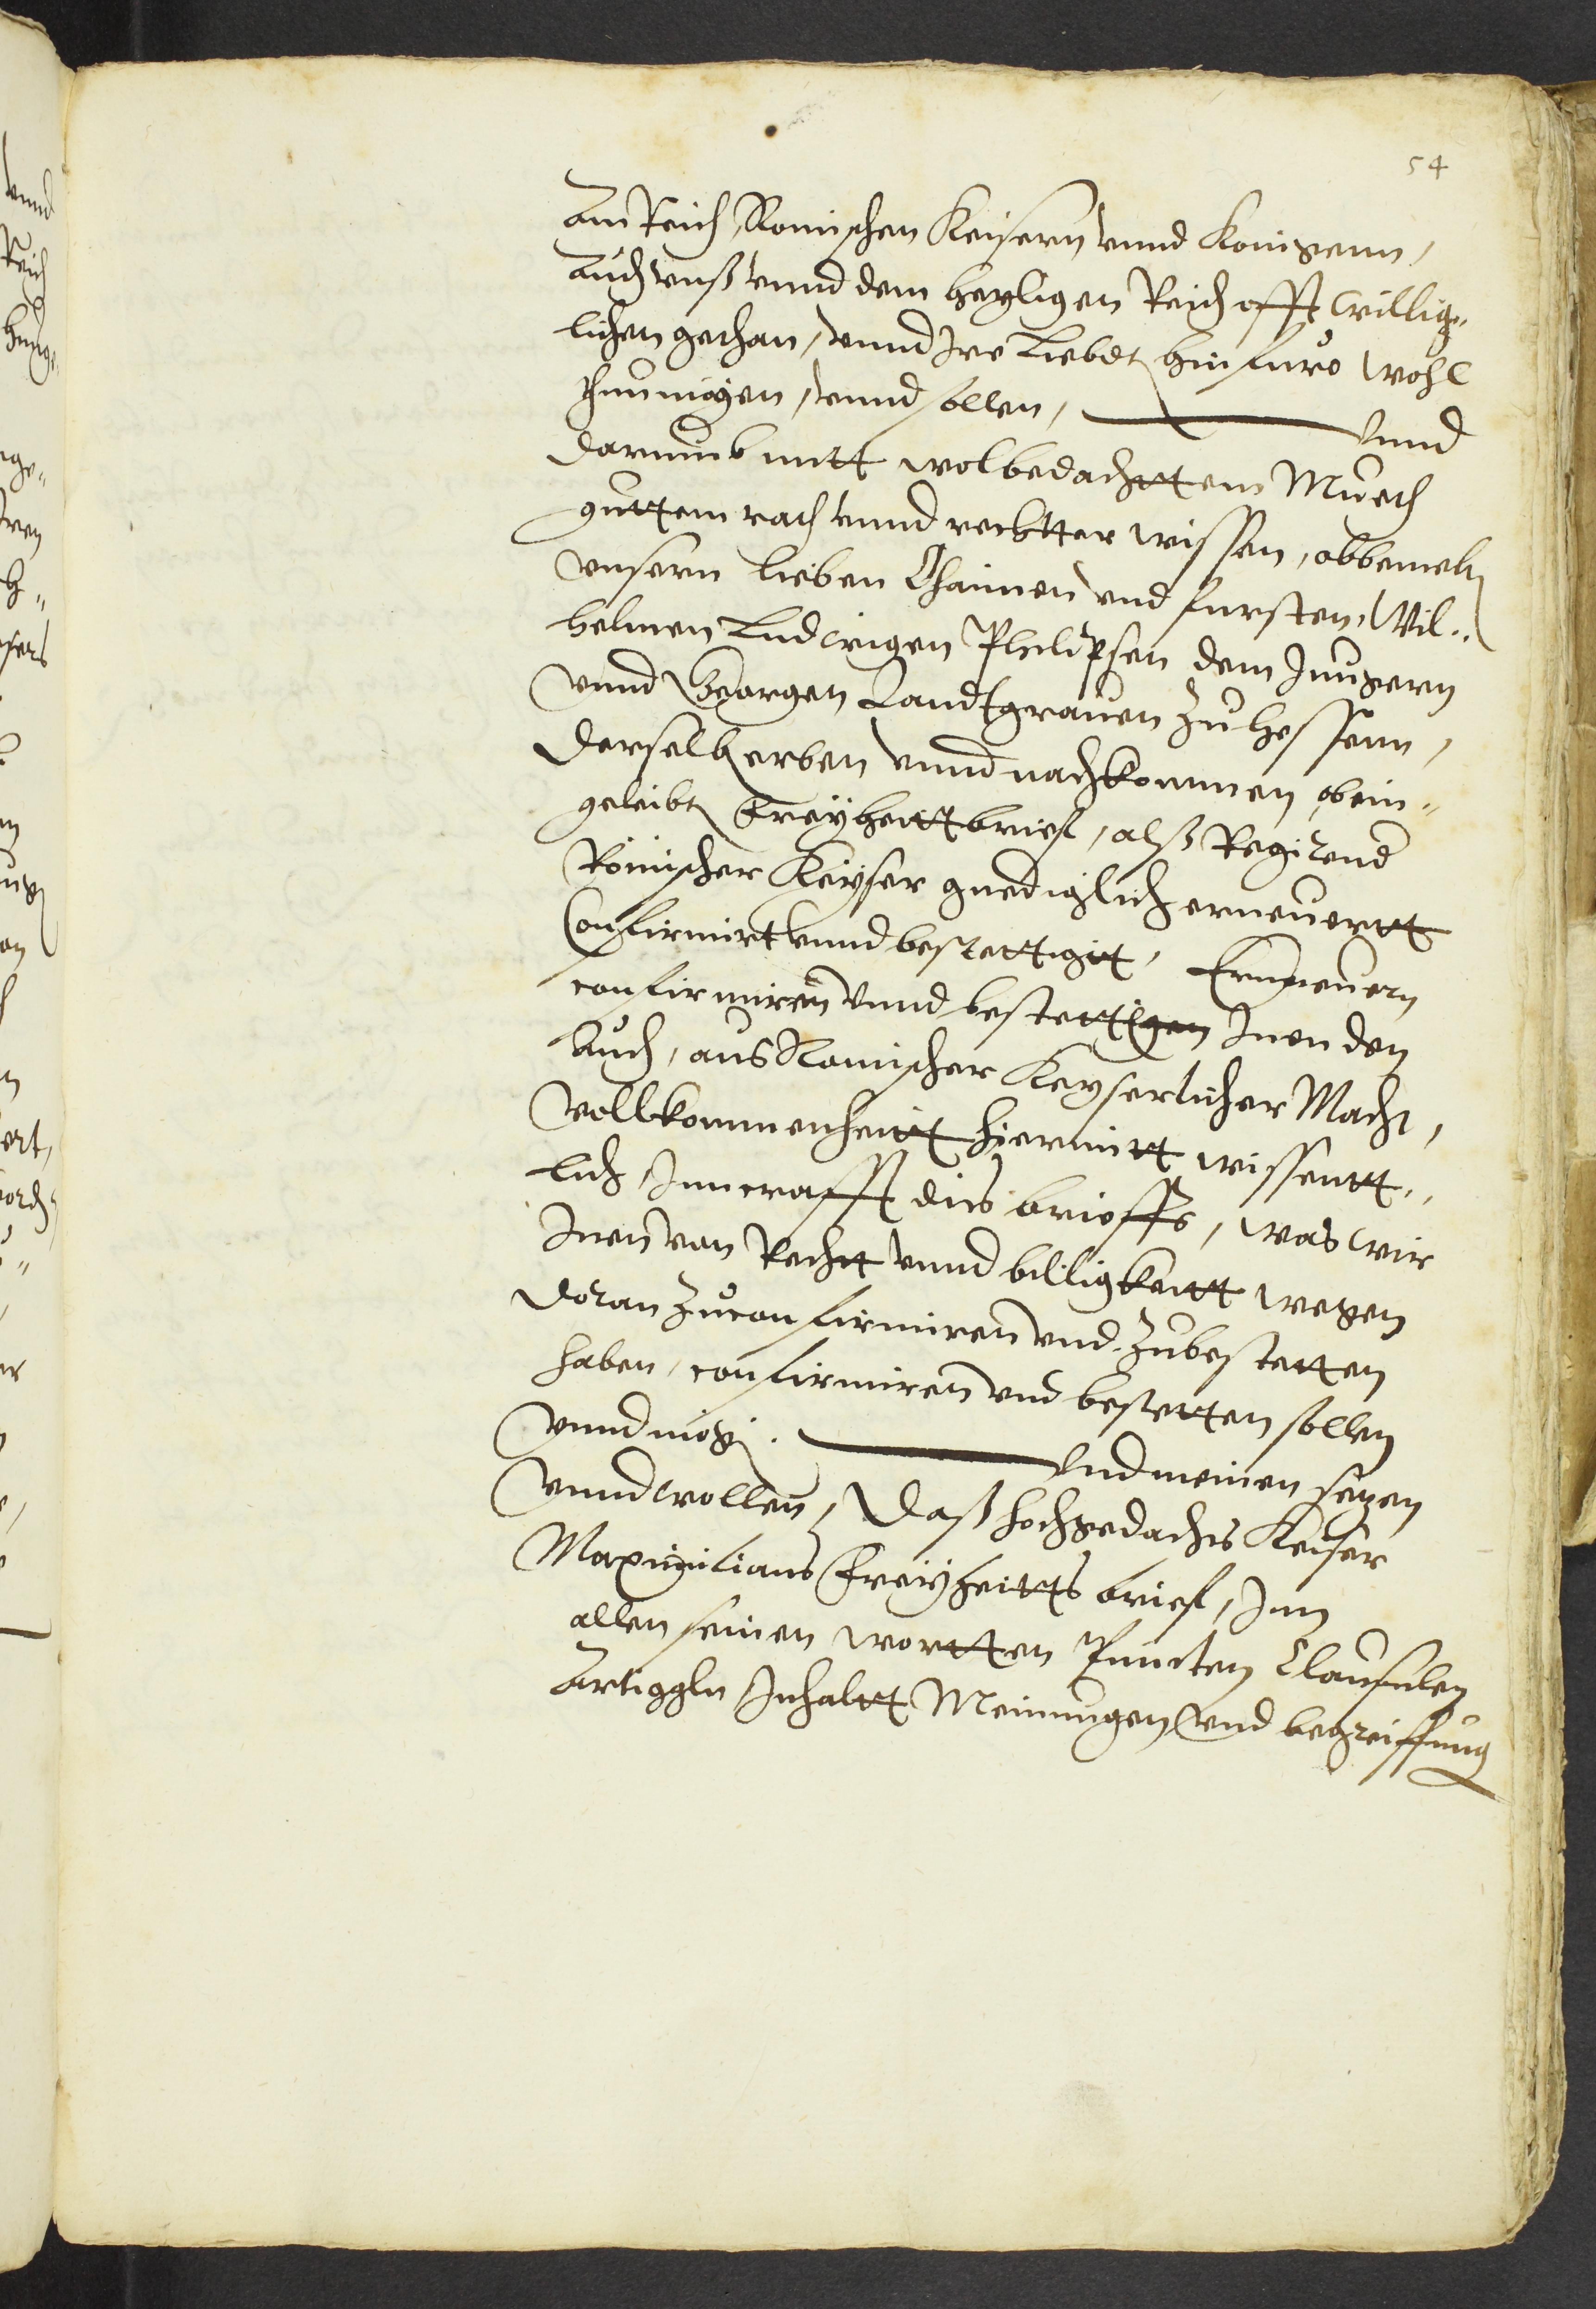 54
Am Reich, Romischen Keisern vnnd Konigenn,
Auch vnß vnnd dem heyligen Reich offt willig„
lichen gethan, vnnd Ire Liebdt hinfuro wohl
thun mögen, vnnd sollen, Vnnd
darumb mitt wolbedachttem Mueth
guttem rath vnnd rechtter wissen, obbemelt
vnsern lieben Ohaimen vnd fursten, Wil„
helmen Ludwigen Philipsen dem Jungern
vnnd Georgen Landtgrauen zu Hessenn,
derselb erben vnnd nachkommen, obein„
geleibt Freyheitt brief, alß Regirend
Römischer Keyser gnediglich erneuertt
Confirmirt vnnd bestettigtt, Ernneuern
confirmiren vnnd bestettigen Inen den
Auch, aus Romischer Keyserlicher Macht,
vollkommenheitt hiermitt wissentt„
lich, Inn crafft dies brieffs, was wir
Inen von Rechtt vnnd billigkeitt wegen
doran zu confirmiren vnd zubestetten
haben, confirmiren vnd bestetten sollen
vnnd mög. Vnd meinen setzen
vnnd wollen, Daß hochgedachts Keiser
Maximilians Freyheitts brief, Inn
allen seinen wortten Puncten Clausulen
Artiggln Inhaltt Meinungen vnd begreiffung